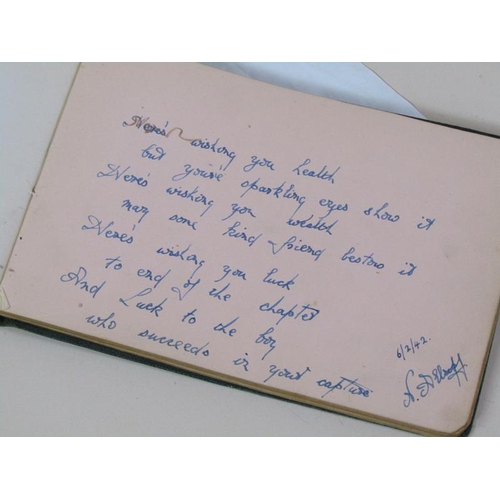 Here's wishing you health
but you're sparkling eyes show it
Here's wishing you wealth
may some kind friend bestow it
Here's wishing you luck
to end of the chapter
And Luck to the boy
who succeeds in your capture
6/2/42.